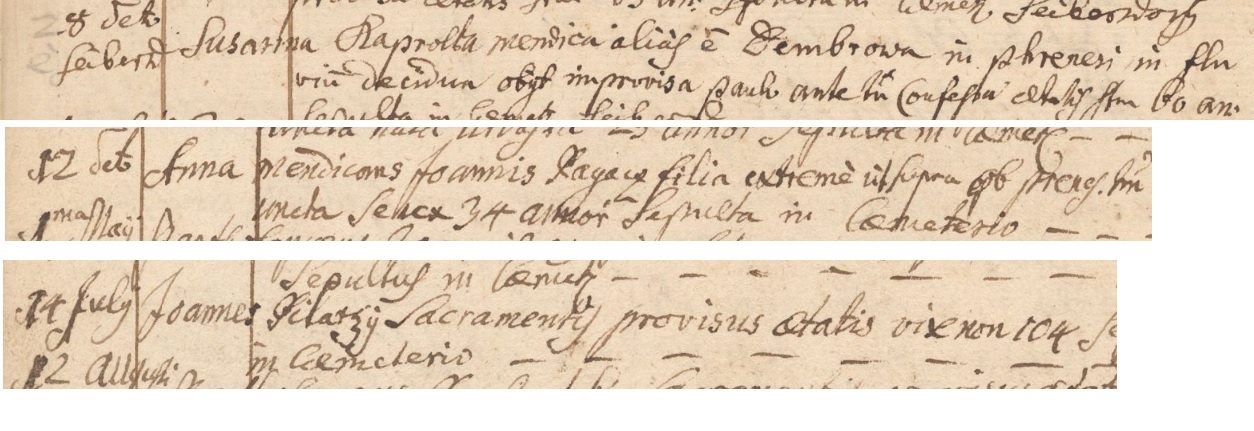 in Cœmet. Seibersdorff
8 det Susanna Raprolta mendica aliàs è Dembrowa in phrenesi in flu
Seibersd vium decidua obijt improvisa paulo ante tn Confessa ætatis suæ 60 an.
Sepulta in Cœmet. Seib
annor Sepulta in Cœmet. – –
12 det Anna mendicans Joannis Ragacz filia extremè ut supra ob phreneg. tm
uncta senex 34 annor Sepulta in Cœmeterio – – –
1ma Maij
Sepultus in Cœmet. – – – – – – –
14 July Joannes Pilatzij Sacramentis provisus ætatis vixenon 104 Se
in Cœmeterio – – – – – – –
12 Augusti